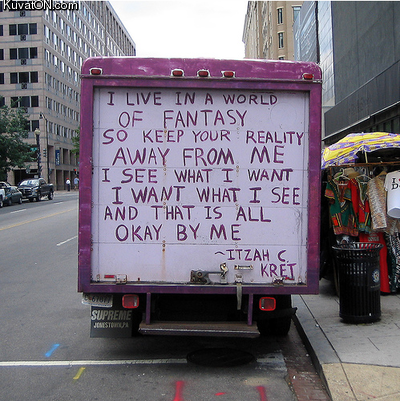 KuvatON.com
I LIVE IN A WORLD
OF FANTASY
SO KEEP YOUR REALITY
AWAY FROM ME
I SEE WHAT I WANT
I WANT WHAT I SEE
AND THAT IS ALL
OKAY BY ME
~ITZAH C.
KRET
SUPREME
JONESTOWN, PA